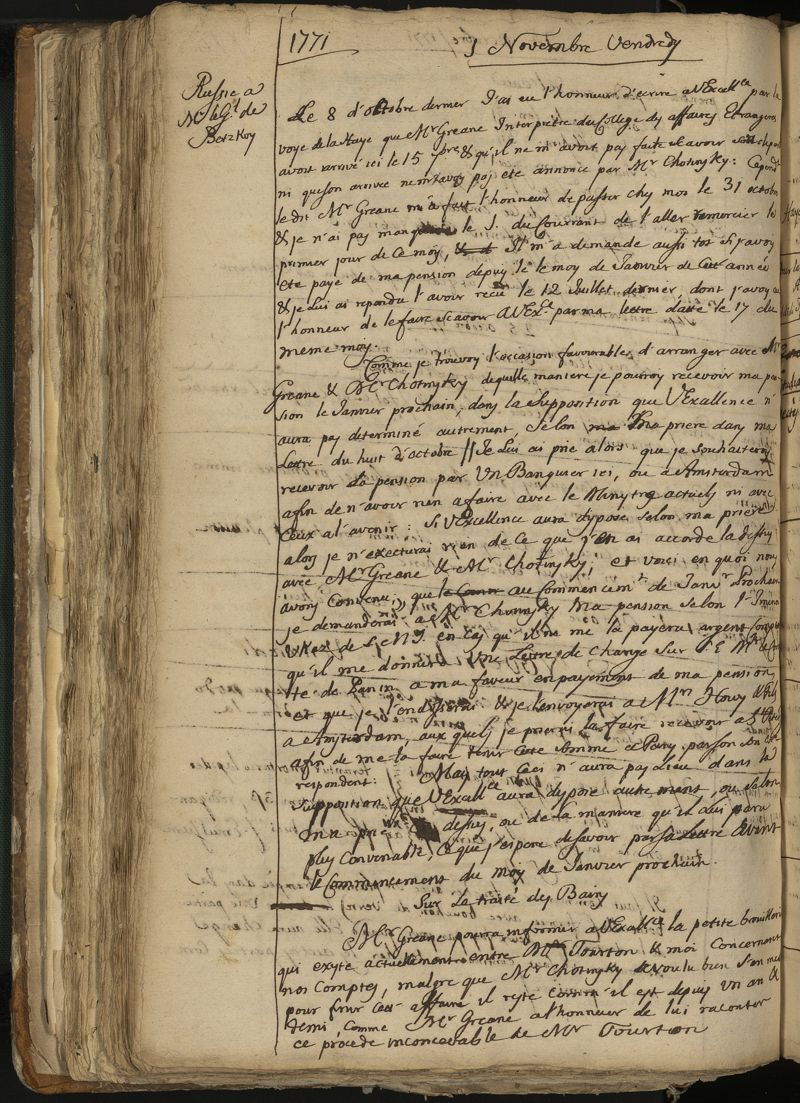 1771
1 Novembre Vendredy
Russie a
Mr le Gl. de
Betzkoy
Le 8 d'Octobre dernier J'ai eu l'honneur d'ecrire a VExcell.ce par la
voye de la Haye que Mr Greane Interprete du College des affaires Etrangeres
avoit arrivé ici le 15 7bre & qu'il ne m'avoit pas fait scavoir
ni que son arrivee ne m'avoit pas eté annoncé par Mr Chotinsky: Cepend.t
le dit Mr Greane m'a fait l'honneur de passer chez moi le 31 octobre
& je n'ai pas manqué le 1. du Courrant de l'aller remercier le
premier jour de ce moy, Il m'a demande aussi tot si j'avoy
eté payé de ma pension depuy le moy de Janvier de Cett année
& je Lui ai repondu l'avoir recu le 12 Juillet dernier, dont j'avoy eu
l'honneur de le faire scavoir a VEx.ce par ma lettre datée le 17 du
meme moy.
Comme je trouvoy l'occasion favourables d'arranger avec Mr
Greane & Mr Chotinsky de quelle maniere je pourroy recevoir ma pen
sion le Janvier prochain, dans la supposition que VExcellence n'
aura pas determiné autrement selon ma priere dans ma
Lettre du huit d'octobre // Je Lui ai prié alors que je souhaiteroy
recevoir la pension par un Banquier ici, ou a Amsterdam
afin de n'avoir rien a faire avec le Ministre actuel, ni avec
Ceux a l'avenir: Si VExcellence aura dyposé selon ma priere
alors je n'executerai rien de Ce que j'en ai accordé la dessus
avec Mr Greane & Mr Chotinsky, et voici en quoi nous
avons Convenu, que au Commencem.t de Janv.r Prochain
je demanderai a Mr Chotinsky ma pension selon l'
de S. M. I. en cas qu'il ne me la payera argent
qu'il me donnera une Lettre de Change sur S E Mr
te de Panin a ma faveur en payement de ma pension
et que je l'endosserai & je l'envoyerai a Mrs
a Amsterdam, aux quels je prierai la faire recevoir a
afin de me la faire tenir cette somme a Pary par son
respondent: Mais tout Ceci n'aura pas lieu dans la
supposition que VExcell.ce aura dyposé autrement, ou selon
ma priere dessus, ou de la maniere qu'il Lui paru
plus Convenable, Ce que j'espere de savoir par sa Lettre Avant
le Commencement du moy de Janvier prochain.
Sur le traité des Bains
Mr Greane pourra informer a VExcell.ce la petite brouillerie
qui exyte actuellement entre Mr Tourton & moi Concernant
nos Comptes, malgre que Mr Chotinsky a voulu bien s'en mel
pour finir cett affaire il reste comme il est depuis un an &
demi, comme Mr Greane a l'honneur de lui raconter
ce procede inconcevable de Mr Tourton